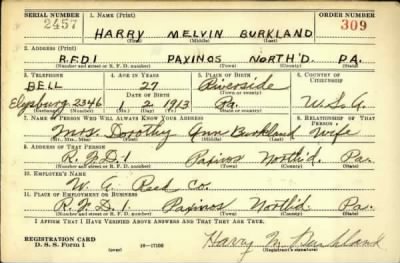 SERIAL NUMBER 1. NAME (Print) ORDER NUMBER
2457 HARRY MELVIN BURKLAND 309
(First) (Middle) (Last)
2. ADDRESS (Print)
R.F.D 1 PAXINOS NORTH'D. PA.
(Number and street or R. F. D. number) (Town) (County) (State)
3. TELEPHONE 4. AGE IN YEARS 5. PLACE OF BIRTH 6. COUNTRY OF CITIZENSHIP
BELL 27 Riverside
DATE OF BIRTH (Town or county)
Elysburg 2346 1 2 1913 Pa. U.S.A.
(Exchange) (Number) (Mo.) (Day) (Yr.) (State or country)
7. NAME OF PERSON WHO WILL ALWAYS KNOW YOUR ADDRESS 8. RELATIONSHIP OF THAT PERSON
Mrs. Dorothy Ann Burkland Wife
(Mr., Mrs., Miss) (First) (Middle) (Last)
9. ADDRESS OF THAT PERSON
R.F.D. 1 Paxinos North'd. Pa.
(Number and street or R. F. D. number) (Town) (County) (State)
10. EMPLOYER'S NAME
W. A. Reed Co.
11. PLACE OF EMPLOYMENT OR BUSINESS
R.F.D. 1 Paxinos North'd. Pa.
(Number and street or R. F. D. number) (Town) (County) (State)
I AFFIRM THAT I HAVE VERIFIED ABOVE ANSWERS AND THAT THEY ARE TRUE.
REGISTRATION CARD
D. S. S. Form 1 (over) Harry M. Burkland
(Registrant's signature)